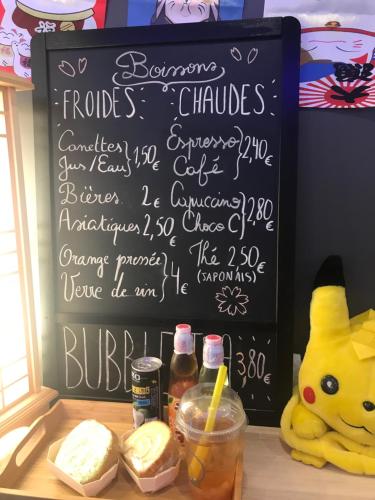 Boissons
FROIDES: CHAUDES:
Canettes
Jus/Eau} 1,50€
Bières 2€
Asiatiques 2,50€
Orange pressée
Verre de vin} 4€
Espresso
Café} 2,40€
Capuccino
Choco C} 2,80€
Thé 2.50€
(JAPONAIS)
BUBBLE 3,80€